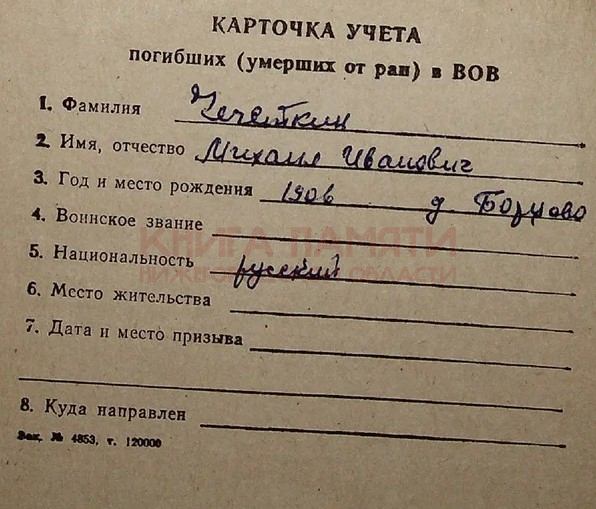 КАРТОЧКА УЧЕТА
погибших (умерших от ран) в ВОВ
1. Фамилия Чечеткин
2. Имя, отчество Михаил Иванович
3. Год и место рождения 1906 д
4. Воинское звание
КНИГА ПАМЯТИ
5. Национальность русский
НИЖЕГОРОДСКОЙ ОБЛАСТИ
6. Место жительства
7. Дата и место призыва
8. Куда направлен
Зак. № 4853, т. 120000